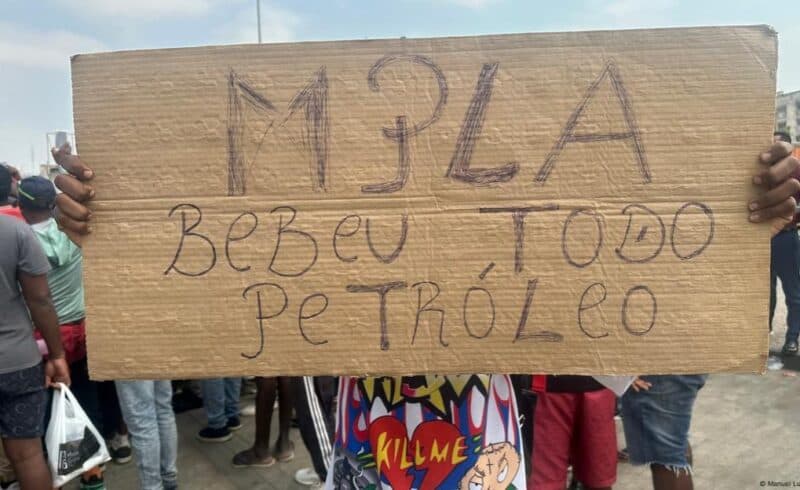 MPLA
BEBEU TODO
PETRÓLEO
KILL ME
© Manuel Lu